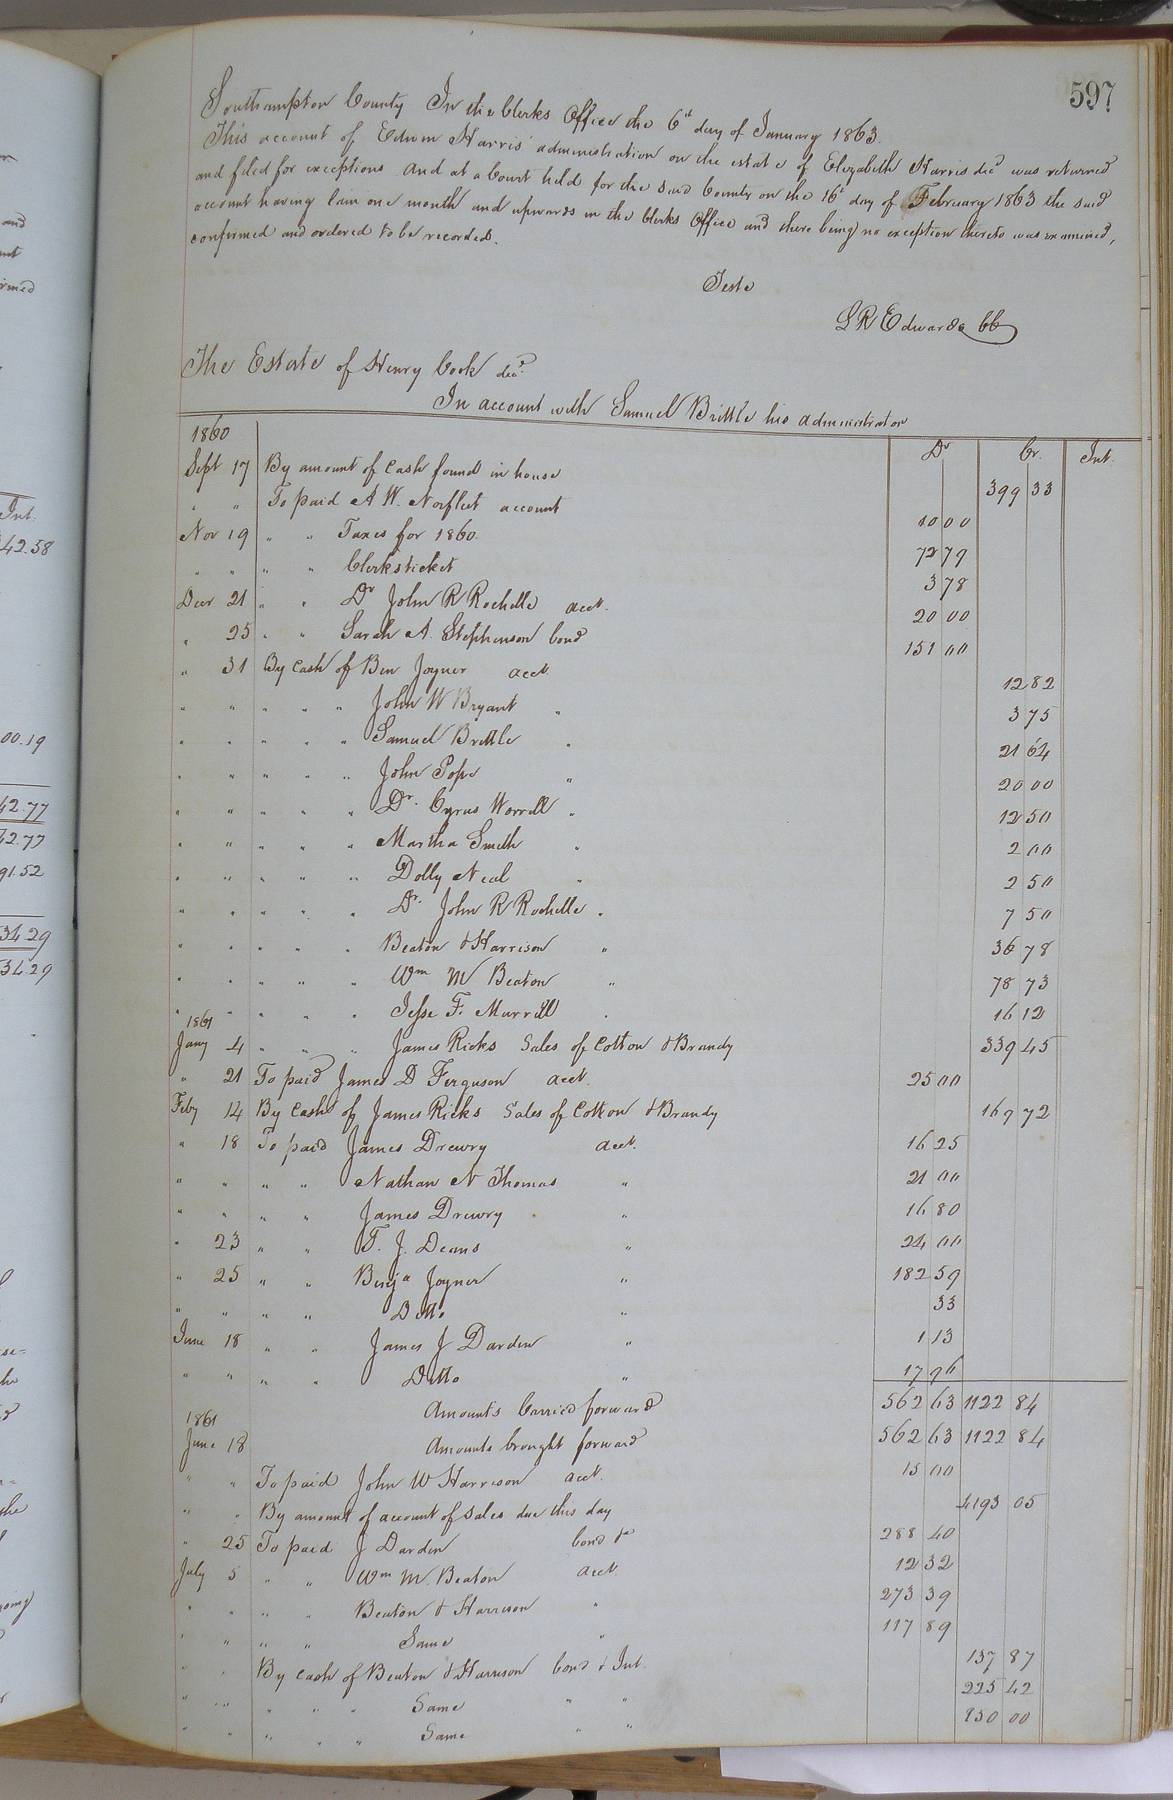 597
Southampton County In the Clerks Office the 6th day of January 1863.
This account of Edwin Harris' administration on the estate of Elizabeth Harris decd was returned
and filed for exceptions And at a Court held for the said County on the 16th day of February 1863 the said
account having lain one month and upwards in the Clerks Office and there being no exception thereto was examined,
confirmed and ordered to be recorded.
Teste
L R Edwards CC
The Estate of Henry Cook decd.
In account with Samuel Brittle his administrator
1860 Dr Cr. Int.
Sept 17 By amount of Cash found in house 399 33
" " To paid A W. Norfleet account 10 00
Nov 19 " " Taxes for 1860 72 79
" " " " Clerks ticket 3 78
Decr 21 " " Dr John R Rochelle acct. 20 00
" 25 " " Sarah A. Stephenson bond 151 00
" 31 By Cash of Ben Joyner acct. 12 82
" " " " " John W Bryant " 3 75
" " " " " Samuel Brittle " 21 64
" " " " " John Pope " 20 00
" " " " " Dr. Cyrus Worrell " 12 50
" " " " " Martha Smith " 2 00
" " " " " Dolly Neal " 2 50
" " " " " Dr. John R Rochelle " 7 50
" " " " " Beaton & Harrison " 36 78
" " " " " Wm M Beaton " 78 73
" " " " " Jesse F. Murrill " 16 12
1861
Jany 4 " " " James Ricks Sales of Cotton & Brandy 339 45
" 21 To paid James D Ferguson acct. 25 00
Feby 14 By Cash of James Ricks Sales of Cotton & Brandy 169 72
" 18 To paid James Drewry acct. 16 25
" " " " Nathan N Thomas " 21 00
" " " " James Drewry " 16 80
" 23 " " T. J. Deans " 24 00
" 25 " " Benja Joyner " 182 59
" " " " Ditto " 33
June 18 " " James J Darden " 1 13
" " " " Ditto " 17 96
Amounts Carried forward 562 63 1122 84
1861
June 18 Amounts brought forward 562 63 1122 84
" " To paid John W Harrison acct. 15 00
" " By amount of account of Sales due this day 4193 05
" 25 To paid J Darden bond &c 288 40
July 5 " " Wm M. Beaton acct. 12 32
" " " " Beaton & Harrison " 273 39
" " " " Same " 117 89
" " By Cash of Beaton & Harrison bond & Int. 137 87
" " " " " Same " " 225 42
" " " " " Same " " 130 00
Int.
42.58
00.19
42.77
42.77
91.52
34.29
34.29